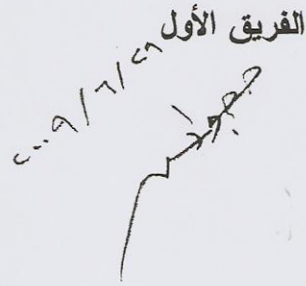 الفريق الأول
٢٠٠٩/٦/٢٩